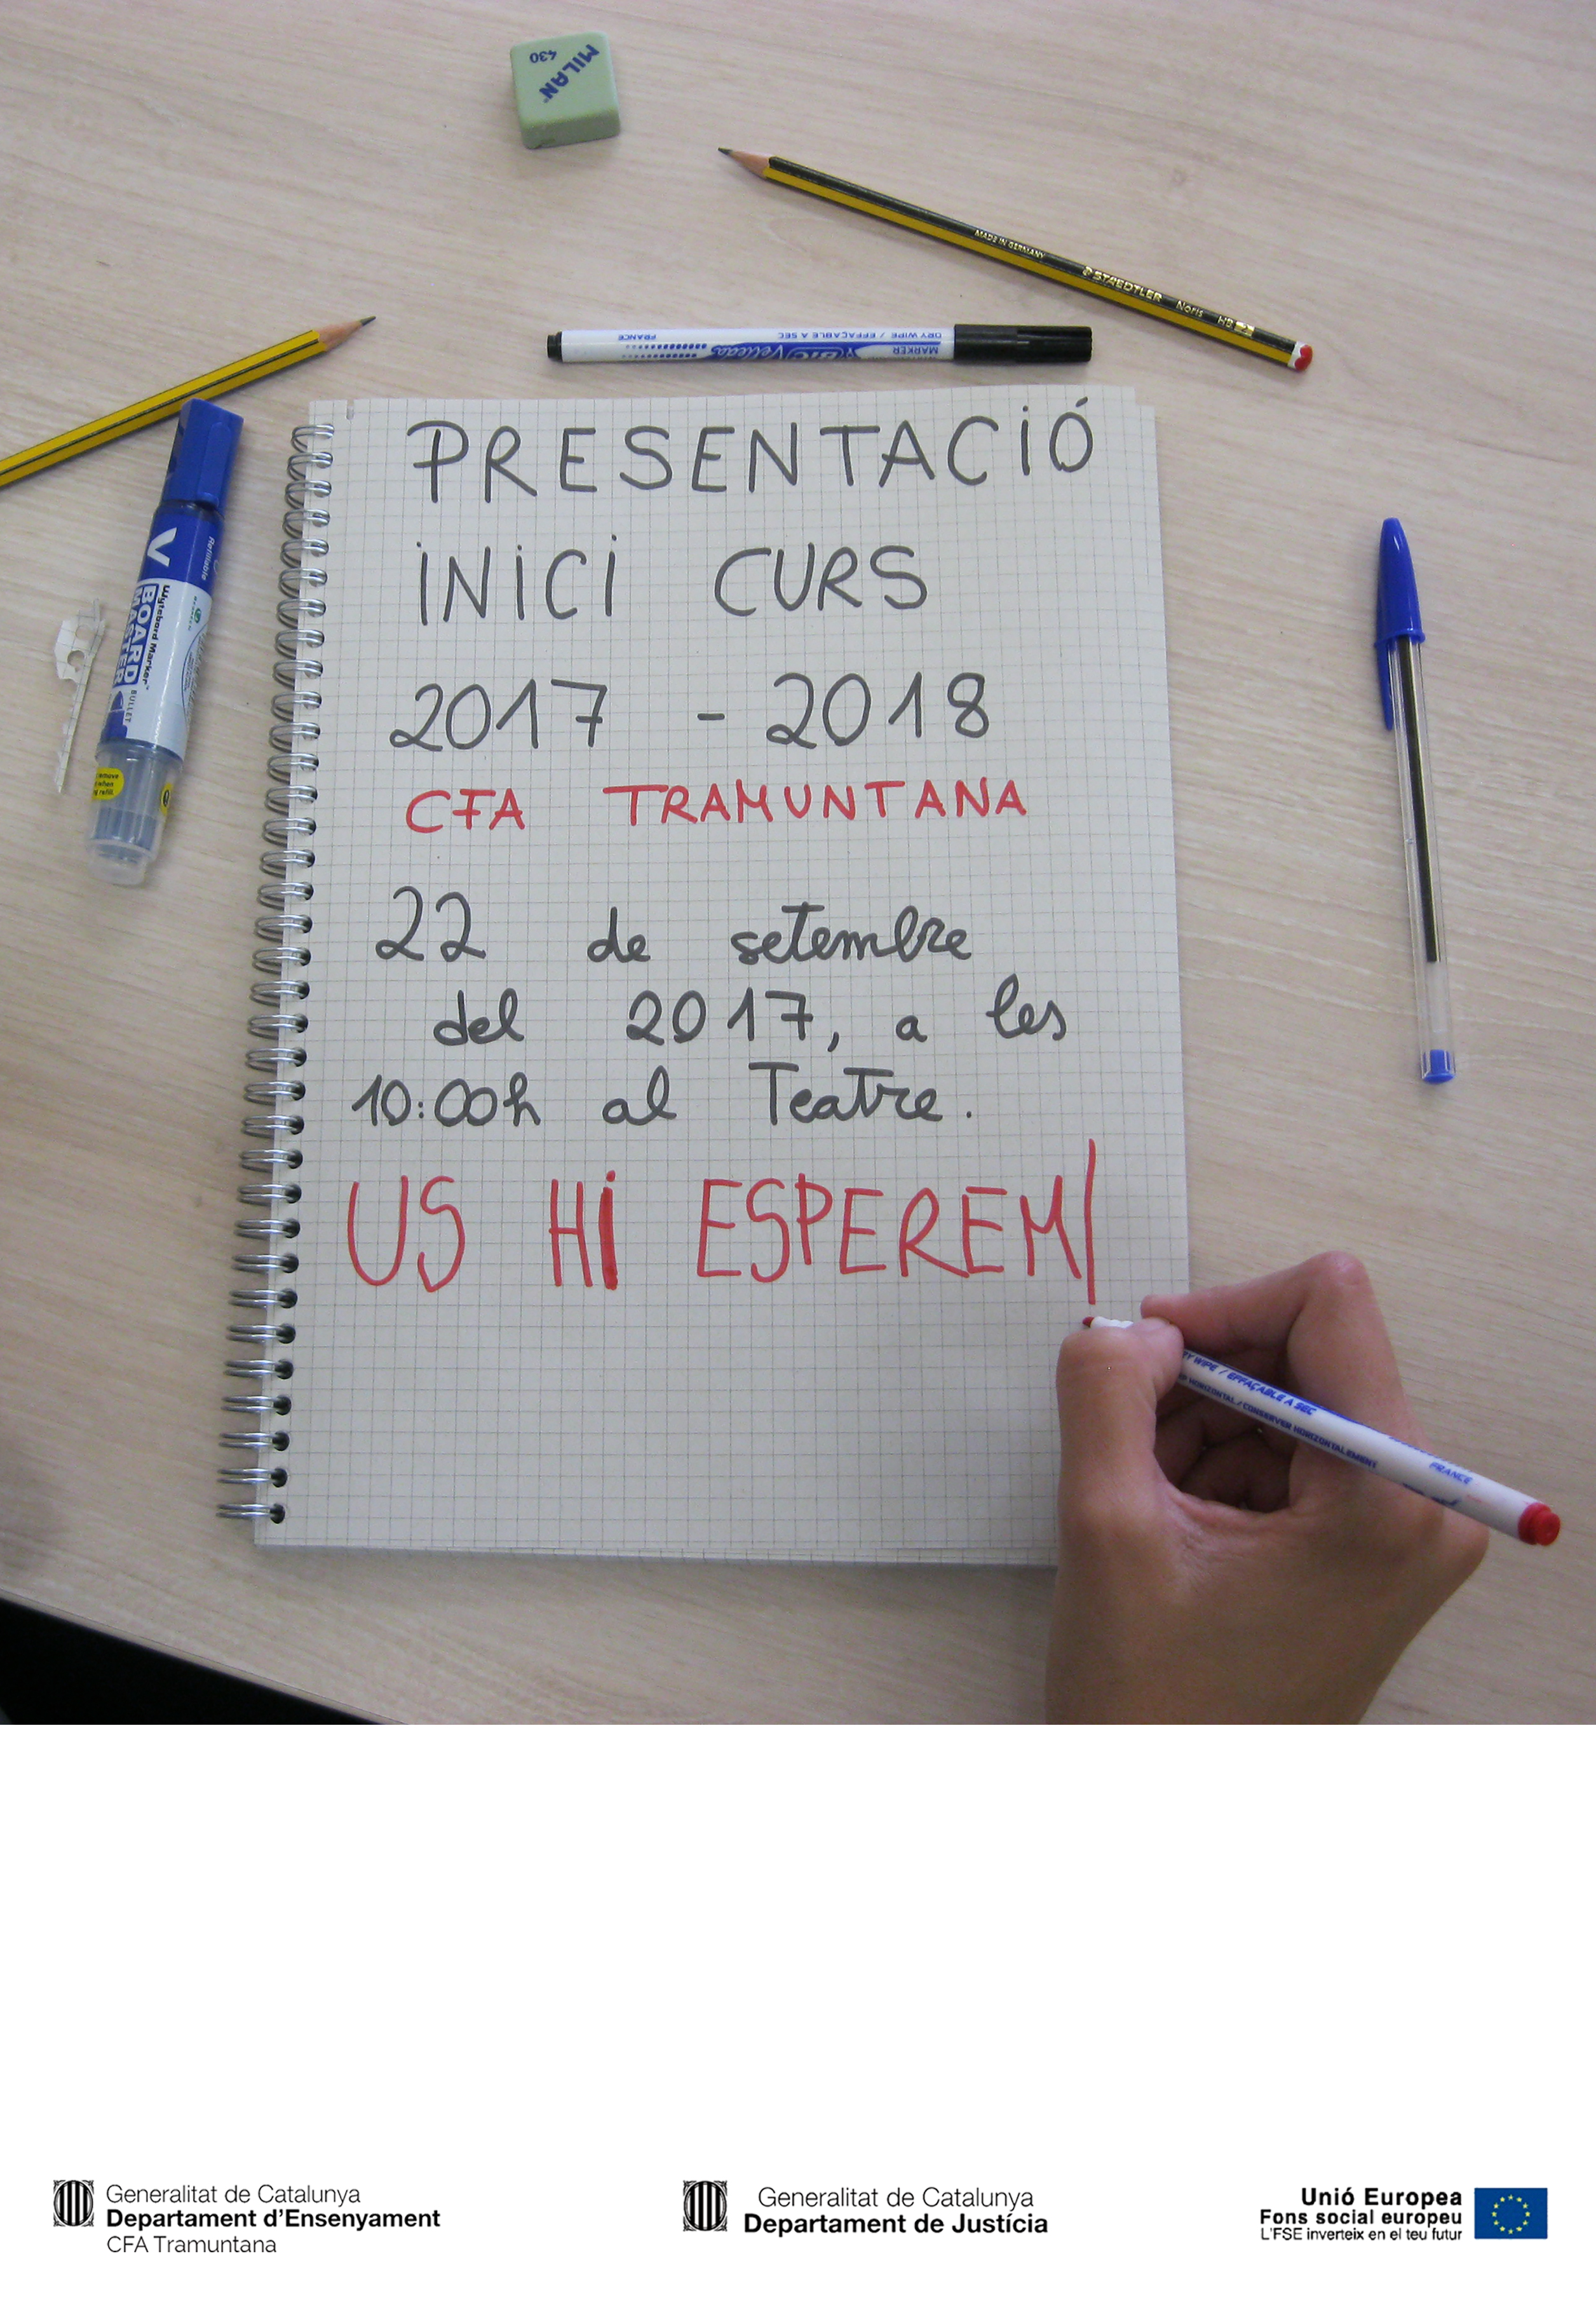 MILAN
430
MADE IN GERMANY STAEDTLER Noris HB 2
DRY WIPE / EFFAÇABLE A SEC
FRANCE
MARKER
BIC Velleda
PRESENTACIÓ
INICI CURS
2017 - 2018
CFA TRAMUNTANA
22 de setembre
del 2017, a les
10:00h al Teatre.
US HI ESPEREM
V
Refillable
Wytebord Marker
BOARD
MASTER
BULLET
DRY WIPE / EFFAÇABLE A SEC
HORIZONTAL / CONSERVER HORIZONTALEMENT
FRANCE
Generalitat de Catalunya
Departament d'Ensenyament
CFA Tramuntana
Generalitat de Catalunya
Departament de Justícia
Unió Europea
Fons social europeu
L'FSE inverteix en el teu futur